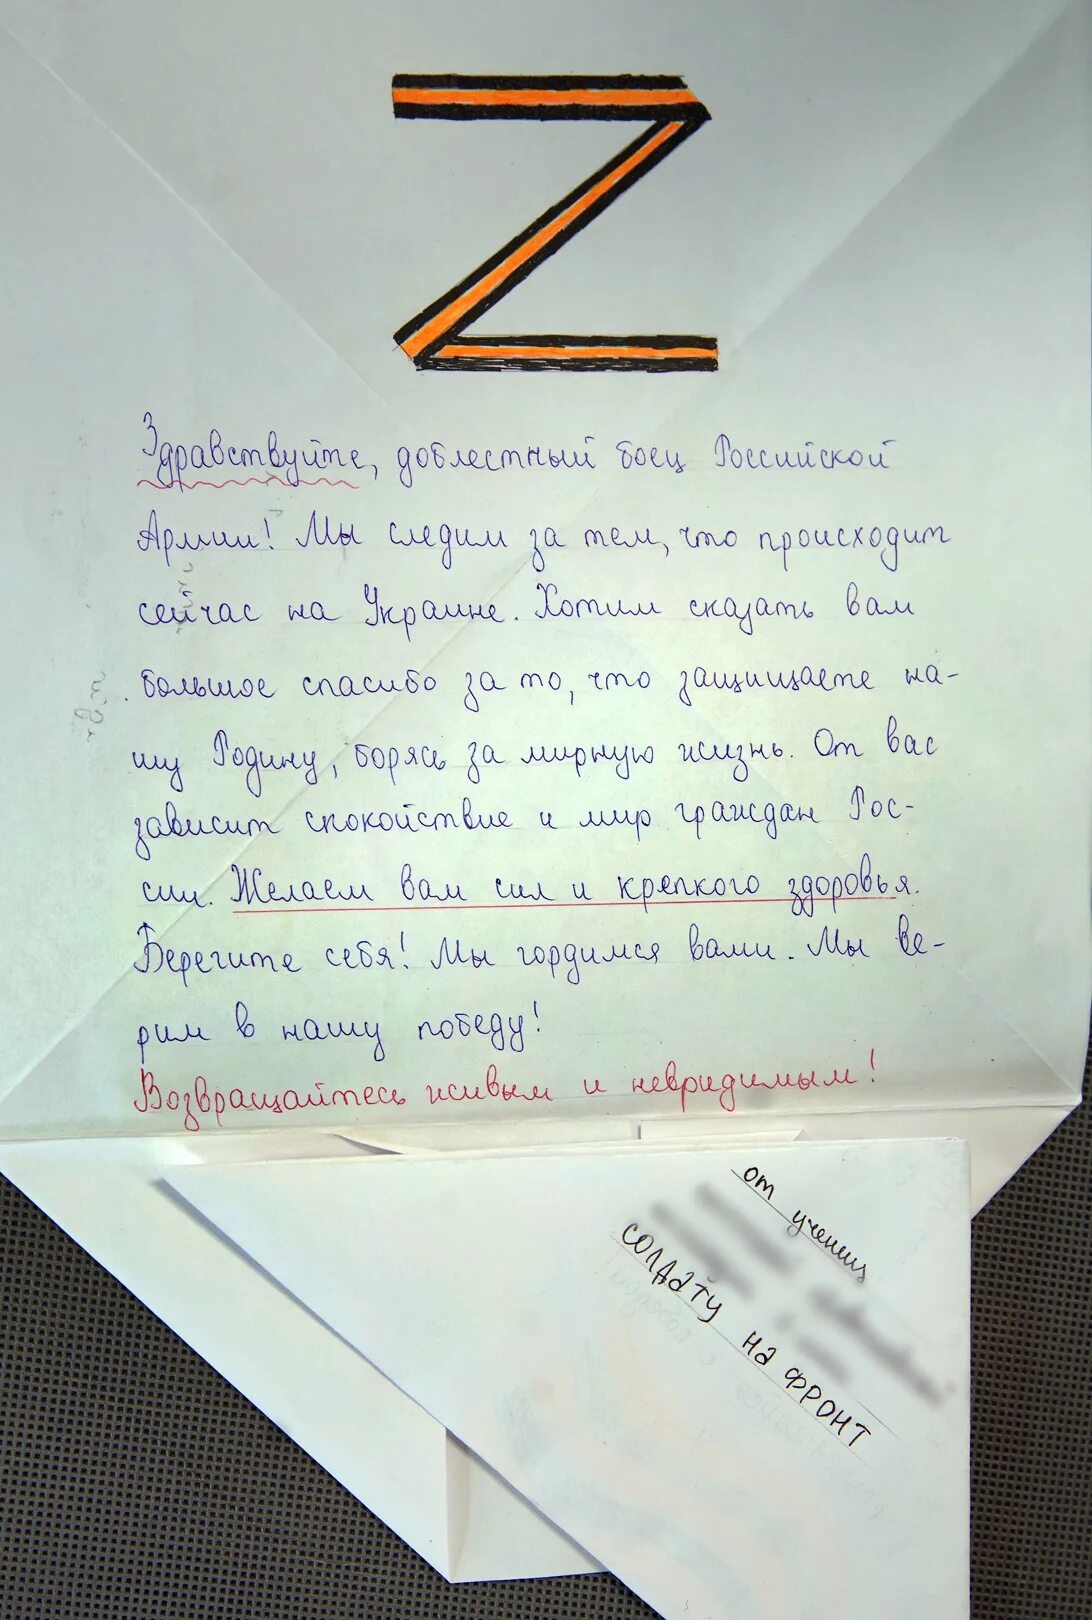 Z
Здравствуйте, доблестный боец Российской
Армии! Мы следим за тем, что происходит
сейчас на Украине. Хотим сказать вам
большое спасибо за то, что защищаете на-
шу Родину, борясь за мирную жизнь. От вас
зависит спокойствие и мир граждан Рос-
сии. Желаем вам сил и крепкого здоровья.
Берегите себя! Мы гордимся вами. Мы ве-
рим в нашу победу!
Возвращайтесь живым и невридимым!
от учениц
солдату на фронт